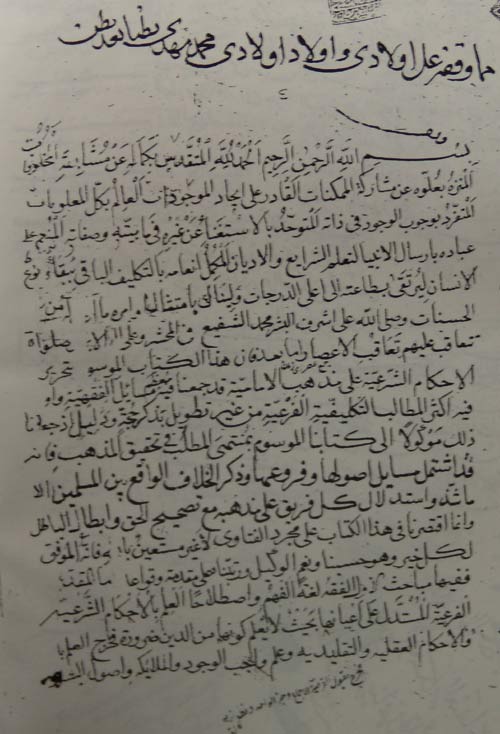 مما وقفه على اولادى و اولاد اولادى محمد مهدى بطنا بعد بطن
وقف
بسم الله الرحمن الرحيم الحمد لله المتقدس بكماله عن مشابهة المخلوقات
المتنزه بعلوه عن مشاركة الممكنات القادر على ايجاد الموجودات العالم بكل المعلومات
المتفرد بوجوب الوجود فى ذاته المتوحد بالاستغناء عن غيره فى ماهيته وصفاته المنعم على
عباده بارسال الانبيا لتعلم الشرايع والاديان المكمل انعامه بالتكليف الباقى ببقاء نوع
الانسان ليرتقى بطاعته الى اعلى الدرجات ولينال بامتثال اوامره
الحسنات وصلى الله على اشرف البشر محمد الشفيع فى المحشر وعلى صلواة
تعاقب عليهم تعاقب الاعصار اما بعد فان هذا الكتاب الموسوم بتحرير
الاحكام الشرعية على مذهب الامامية قد جمعنا فيه معظم المسايل الفقهية و
فيه اكثر المطالب التكليفية الفرعية من غير تطويل بذكر حجة و دليل اذ جعلنا
ذلك موكولا الى كتابنا الموسوم بمنتهى المطلب فى تحقيق المذهب فانه
قد اشتمل مسايل اصولها و فروعها وذكر الخلاف الواقع بين المسلمين الا
ما شذ واستدلال كل فريق على مذهبه مع تصحيح الحق وابطال الباطل
وانما اقتصرنا فى هذا الكتاب على مجرد الفتاوى لا غير مستعين بالله فانه الموفق
لكل خير وهو حسبنا ونعم الوكيل ورتبناه على مقدمة وقواعد اما المقدمة
ففيها مباحث الفقه لغة الفهم واصطلاحا العلم بالاحكام الشرعية
الفرعية المستدل على اعيانها بحيث لا يعلم كونها من الدين ضرورة فخرج العلم با
والاحكام العقلية والتقليديه وعلم واجب الوجود والملائكه واصول الشريعه